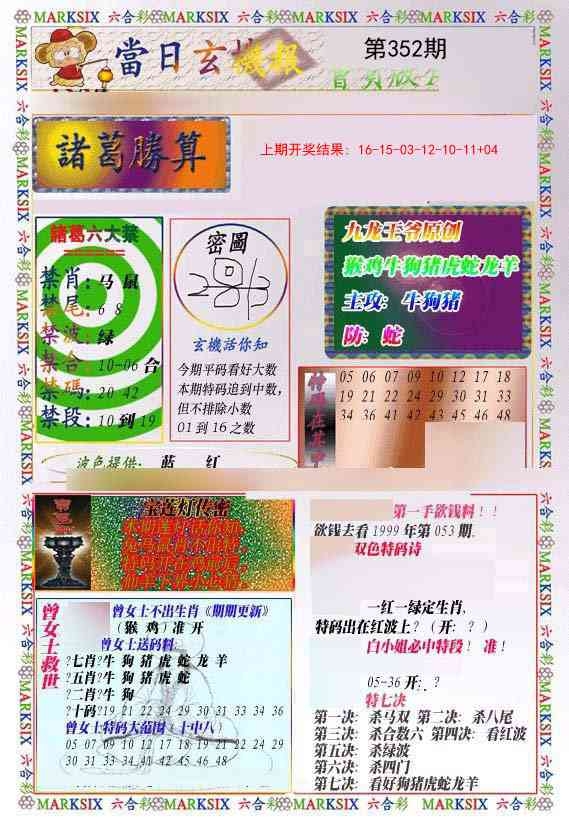 MARKSIX 六合彩 MARKSIX 六合彩 MARKSIX 六合彩 MARKSIX 六合彩
當日玄機報
第352期
諸葛勝算
上期开奖结果：16-15-03-12-10-11+04
諸葛六大禁
禁肖：马 鼠
禁尾：6 8
禁波：绿
禁合：10-06 合
禁碼：20 42
禁段：10 到 19
密圖
玄機活你知
今期平码看好大数
本期特码追到中数，
但不排除小数
01 到 16 之数
九龙王爷原创
猴鸡牛狗猪虎蛇龙羊
主攻：牛狗猪
防：蛇
05 06 07 09 10 12 17 18
19 21 22 24 29 30 31 33
34 36 41 42 43 45 46 48
波色提供：蓝 红
宝莲灯传密
第一手欲钱料！！
欲钱去看 1999 年第 053 期.
双色特码诗
一红一绿定生肖，
特码出在红波上？（开：？）
白小姐必中特段！ 准！
05-36 开：？
特七决
第一决：杀马双 第二决：杀八尾
第三决：杀合数六 第四决：看红波
第五决：杀绿波
第六决：杀四门
第七决：看好狗猪虎蛇龙羊
曾女士救世
曾女士不出生肖《期期更新》
（猴 鸡）准 开
曾女士送码料:
?七肖?牛 狗 猪 虎 蛇 龙 羊
?五肖?牛 狗 猪 虎 蛇
?二肖?牛 狗
?十码?19 21 22 24 29 30 31 33 34 36
曾女士特码大范围（十中八）
05 07 09 10 12 17 18 19 21 22 24 29
30 31 33 34 41 42 45 46 48
MARKSIX 六合彩 MARKSIX 六合彩 MARKSIX 六合彩 MARKSIX 六合彩